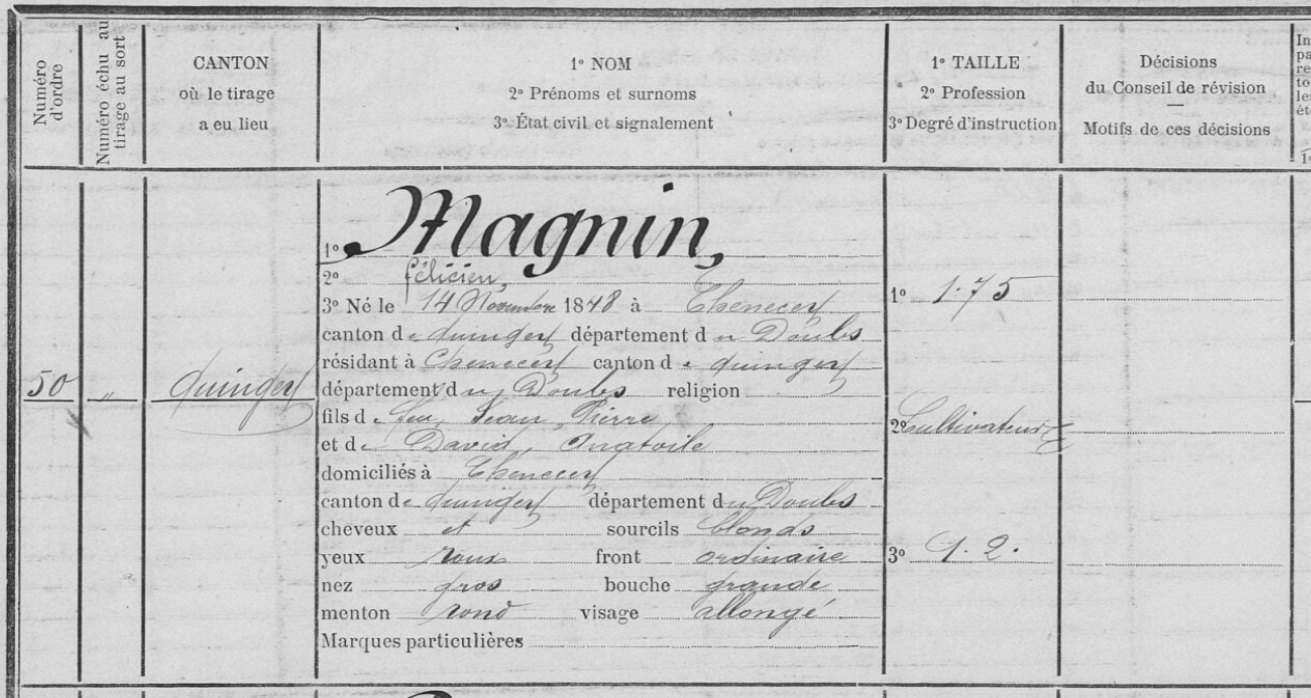 Numéro d'ordre
Numéro échu au tirage au sort
CANTON
où le tirage
a eu lieu
1º NOM
2º Prénoms et surnoms
3º État civil et signalement
1º TAILLE
2º Profession
3º Degré d'instruction
Décisions
du Conseil de révision
Motifs de ces décisions
50 " quingey
1º Magnin,
2º félicien,
3º Né le 14 Novembre 1848 à Chenecey
canton de quingey département du Doubs
résidant à Chenecey canton de quingey
département du Doubs religion
fils de feu Jean, Pierre
et de David, Anatoile
domiciliés à Chenecey
canton de quingey département du Doubs
cheveux et sourcils blonds
yeux roux front ordinaire
nez gros bouche grande
menton rond visage allongé
Marques particulières
1º 1.75
2º Cultivateur
3º 1.2.